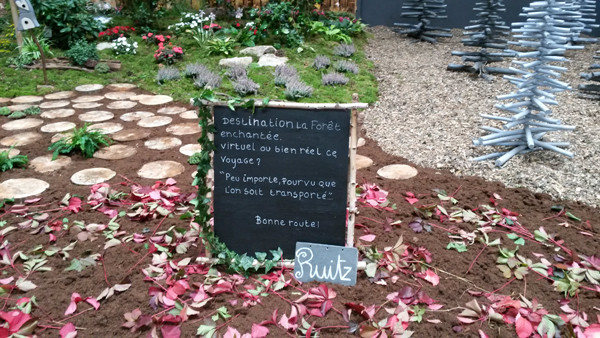 Destination La Forêt
enchantée.
virtuel ou bien réel ce
voyage?
"Peu importe, pourvu que
l'on soit transporté".
Bonne route!
Ruitz